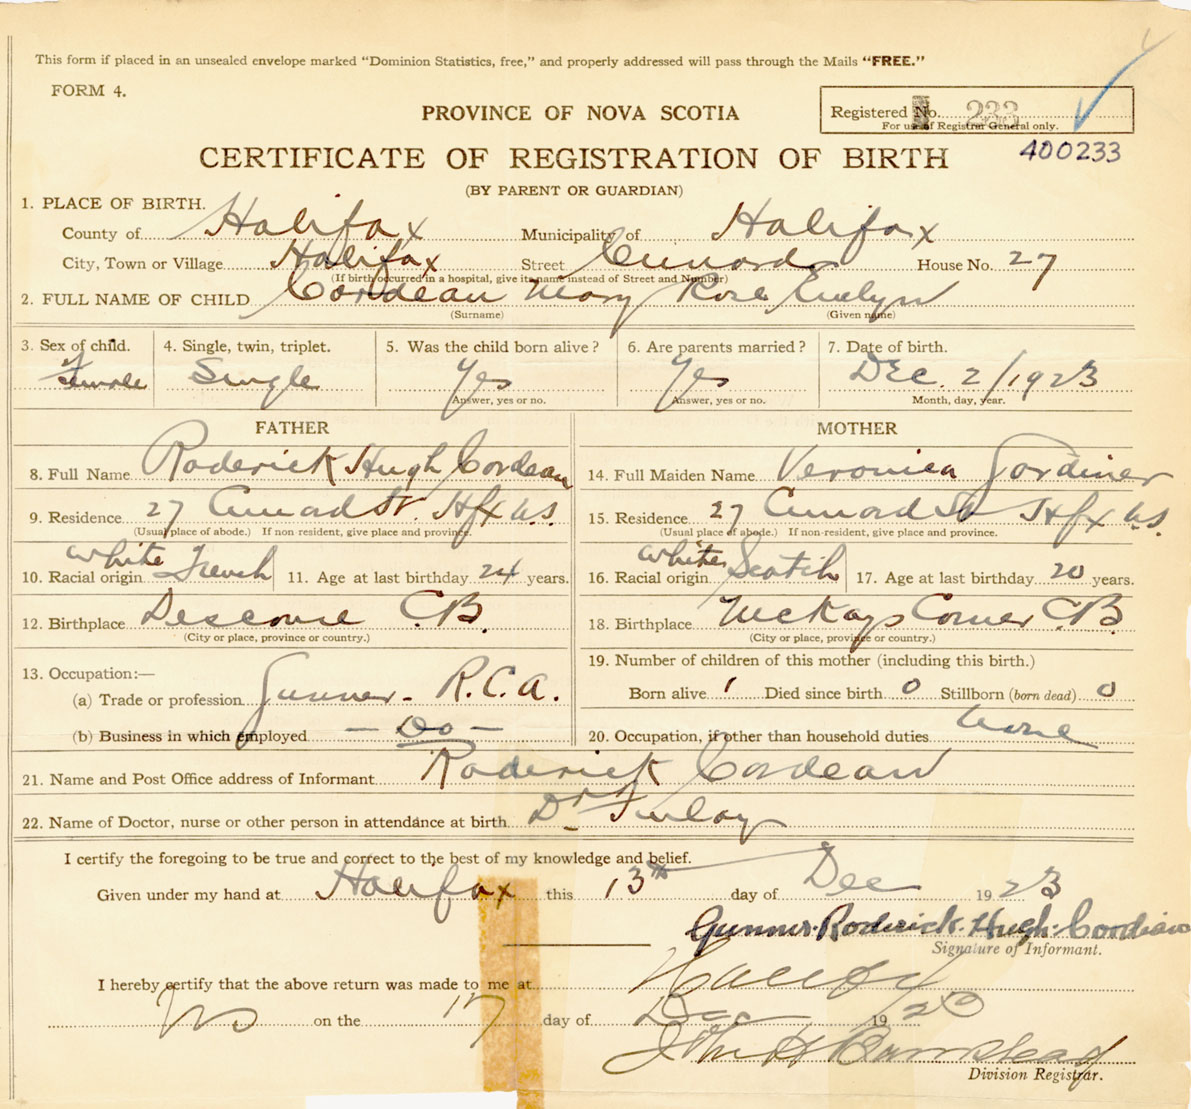 This form if placed in an unsealed envelope marked "Dominion Statistics, free," and properly addressed will pass through the Mails "FREE."
FORM 4.
PROVINCE OF NOVA SCOTIA
Registered No. 233
For use of Registrar General only.
CERTIFICATE OF REGISTRATION OF BIRTH
400233
(BY PARENT OR GUARDIAN)
1. PLACE OF BIRTH.
County of Halifax Municipality of Halifax
City, Town or Village Halifax Street Cunard House No. 27
(If birth occurred in a hospital, give its name instead of Street and Number)
2. FULL NAME OF CHILD Cordeau Mary Rose Evelyn
(Surname) (Given name)
3. Sex of child. 4. Single, twin, triplet. 5. Was the child born alive? 6. Are parents married? 7. Date of birth.
Female Single Yes Yes Dec. 2/1923
Answer, yes or no. Answer, yes or no. Month, day, year.
FATHER MOTHER
8. Full Name Roderick Hugh Cordeau 14. Full Maiden Name Veronica Gordiner
9. Residence 27 Cunard St. Hfx N.S. 15. Residence 27 Cunard St Hfx N.S.
(Usual place of abode.) If non-resident, give place and province. (Usual place of abode.) If non-resident, give place and province.
10. Racial origin White French 11. Age at last birthday 24 years. 16. Racial origin White Scotch 17. Age at last birthday 20 years.
12. Birthplace Descouse C.B. 18. Birthplace McKays Corner C.B.
(City or place, province or country.) (City or place, province or country.)
13. Occupation:— 19. Number of children of this mother (including this birth.)
(a) Trade or profession Gunner - R.C.A. Born alive 1 Died since birth 0 Stillborn (born dead) 0
(b) Business in which employed — Do — 20. Occupation, if other than household duties None
21. Name and Post Office address of Informant Roderick Cordeau
22. Name of Doctor, nurse or other person in attendance at birth Dr Finlay
I certify the foregoing to be true and correct to the best of my knowledge and belief.
Given under my hand at Halifax this 13th day of Dec 1923
Gunner. Roderick. Hugh. Cordeau
Signature of Informant.
I hereby certify that the above return was made to me at Halifax
NS on the 17 day of Dec 19
John H Barnstead
Division Registrar.